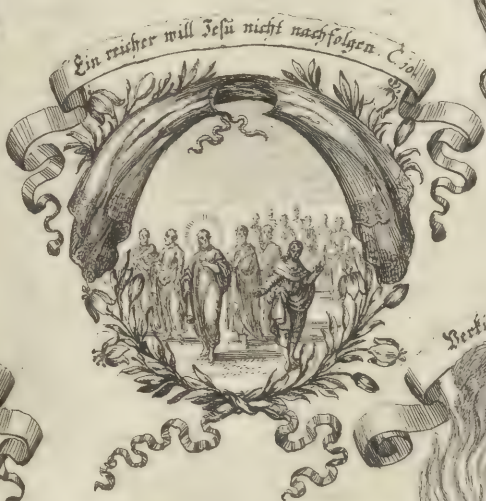 Ein reicher will Jesu nicht nachfolgen